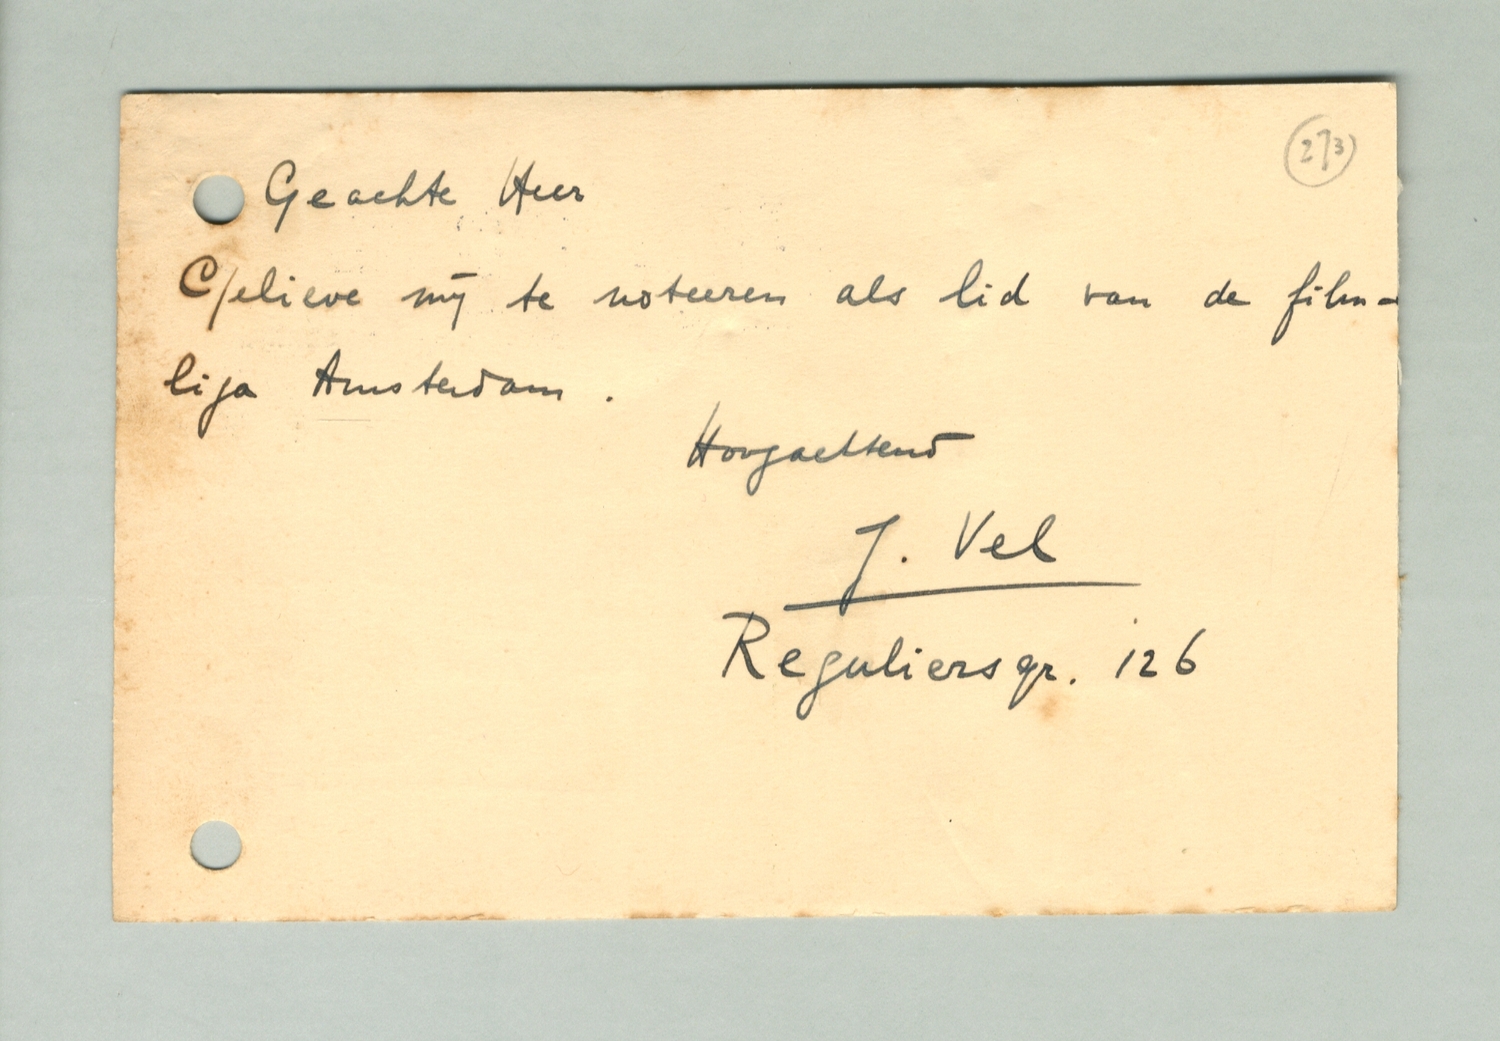 273
Geachte Heer
Gelieve mij te noteeren als lid van de film-
liga Amsterdam.
Hoogachtend
J. Vel
Reguliersgr. 126